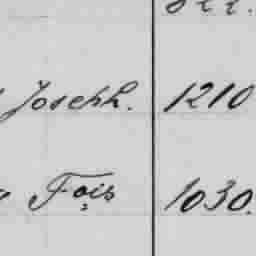 Joseph. 1210
Fois 1030.